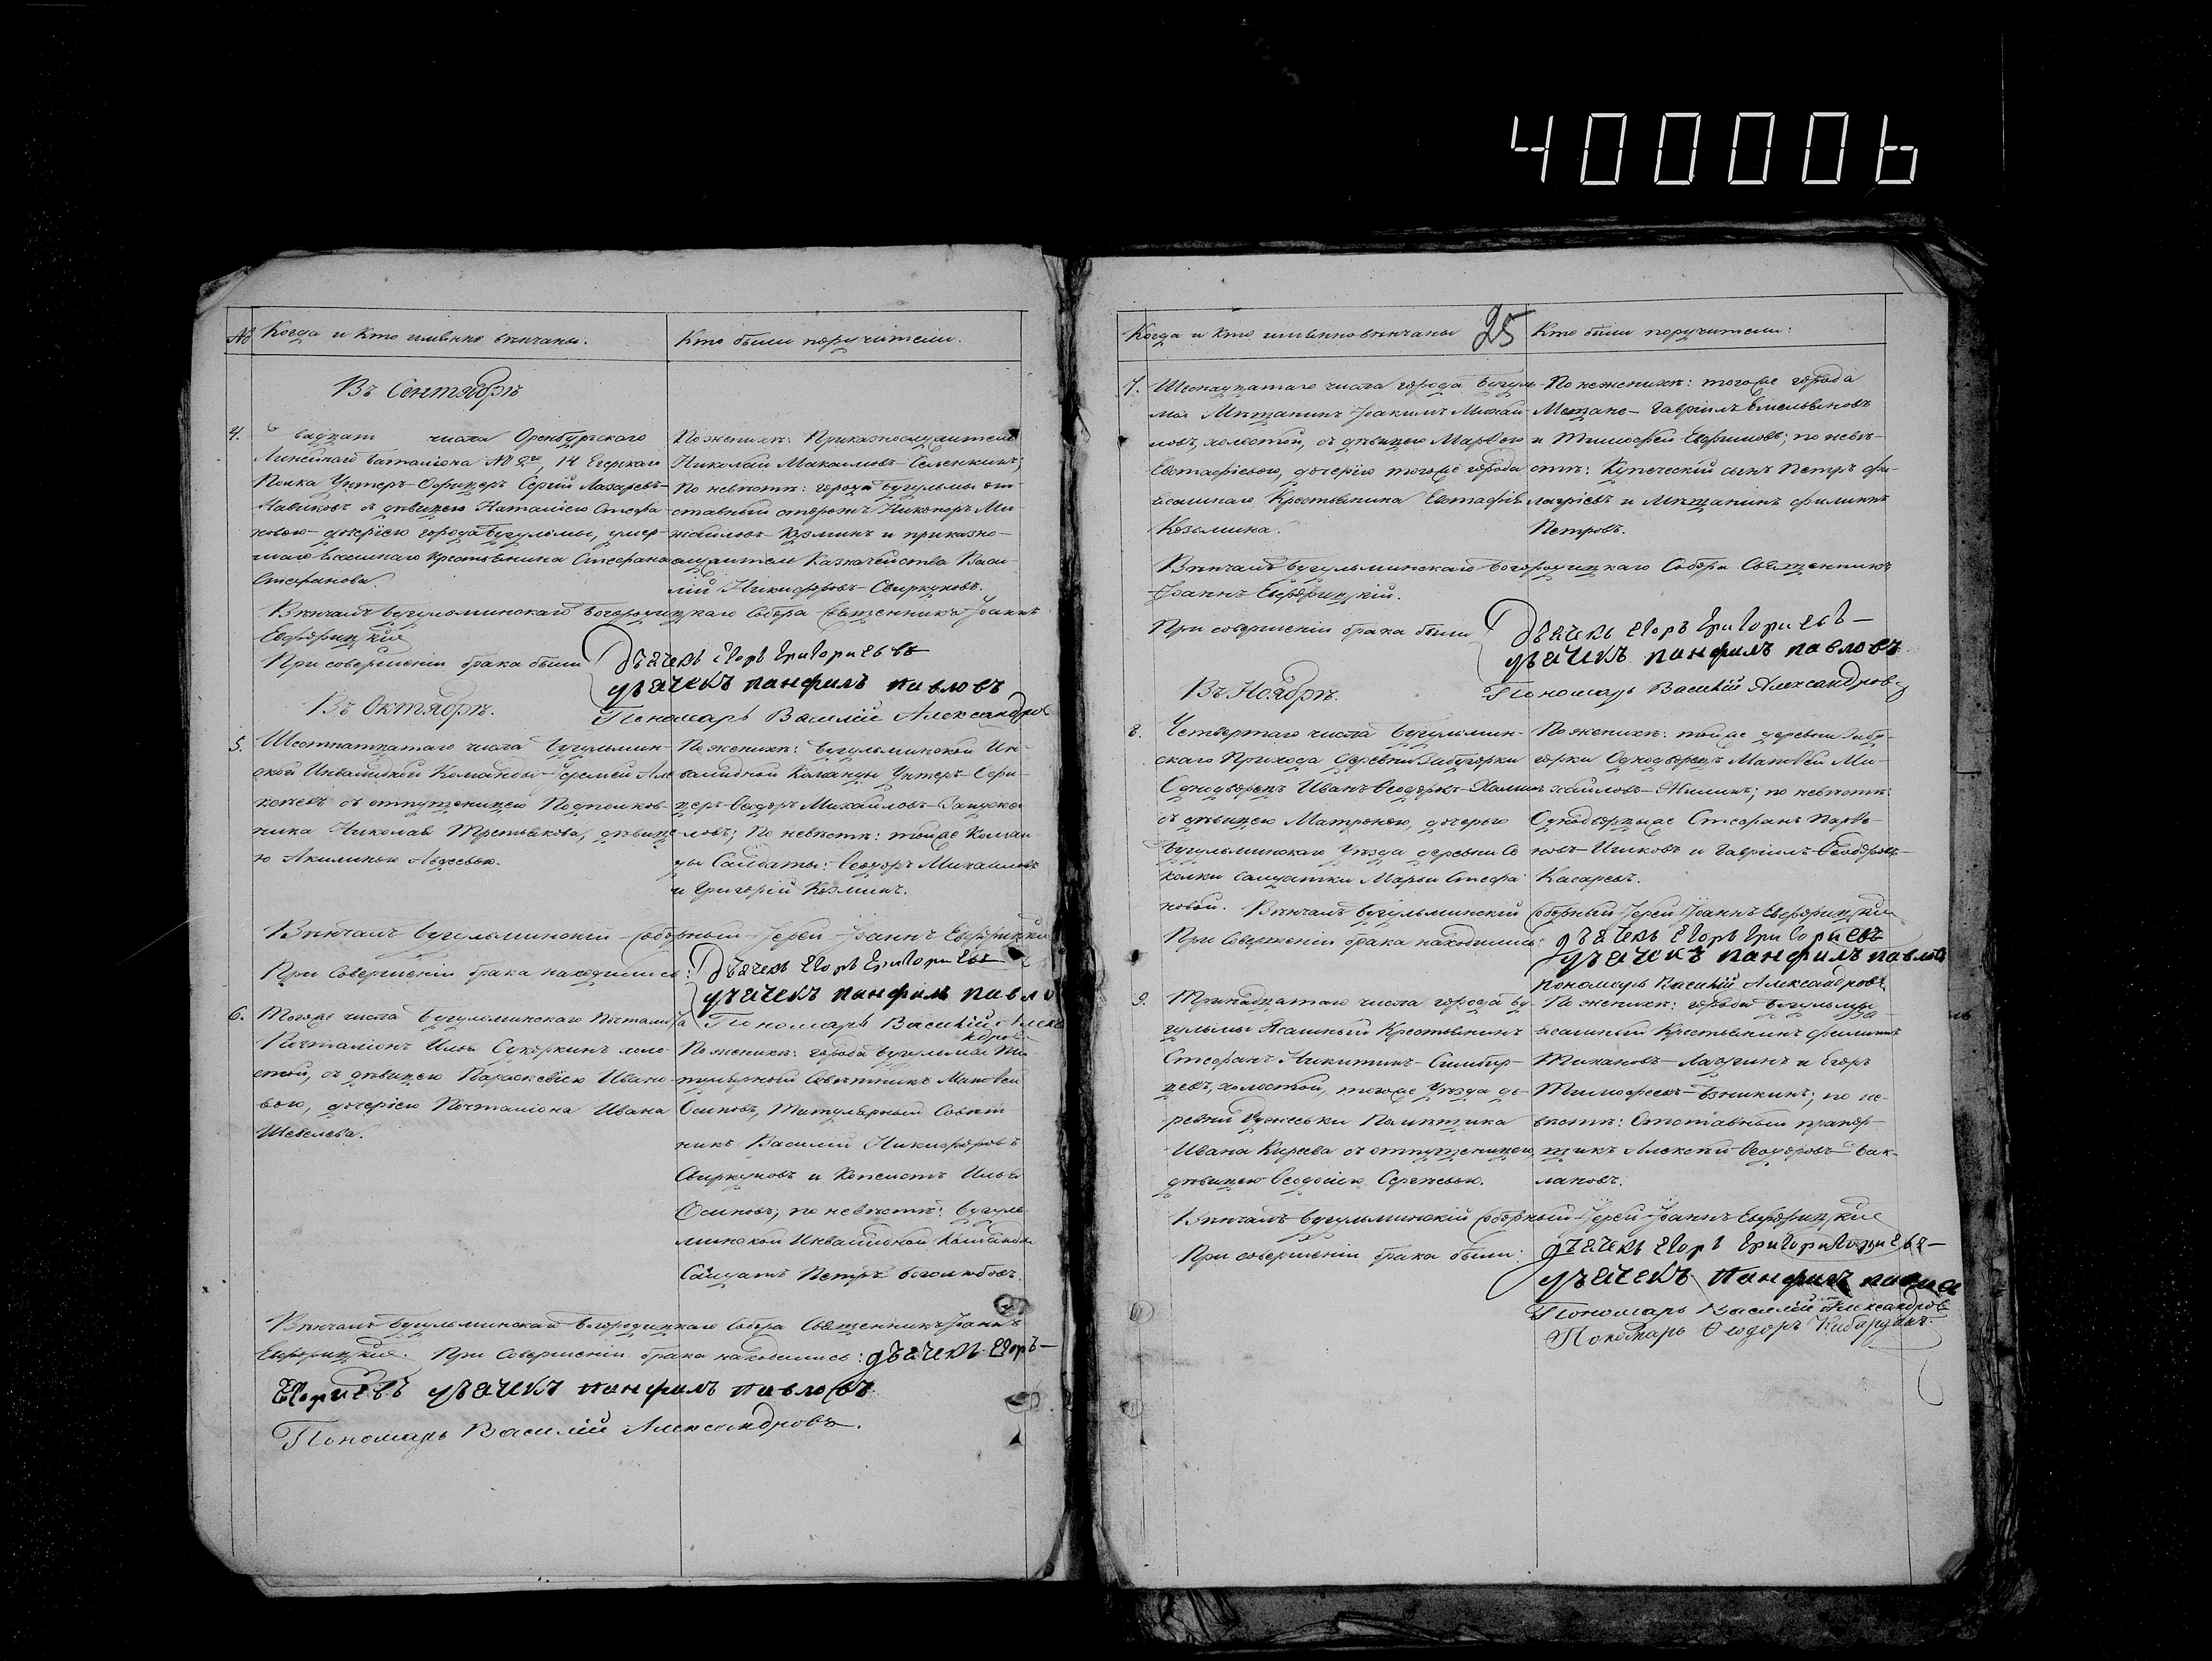 400006
№ Когда и кто именно венчаны.
Кто были поручители.
Въ Сентябрѣ
4. числа Оренбургскаго
Линейнаго баталіона № 14 Егерскаго
Полка Унтеръ-Офицеръ Сергій Лазаревъ-
Навиковъ съ дѣвицею Наталіею Стефа-
новою дочерію города Бугульмы, умер-
шаго Ясашнаго Крестьянина Стефана
Стефанова.
По женихѣ: Приказнослужитель
Николай Макаимовъ-Селенкинъ;
По невѣстѣ: города Бугульмы от-
ставный сторожъ Никоноръ Ми-
хайловъ- и приказно-
служитель Казначейства Васи-
лій Никифоровъ-Свиркуновъ.
Вѣнчалъ Бугульминскаго Богородицкаго Собора Священникъ Іоаннъ
Евфорицкій
При совершеніи брака были
Дьячекъ Егоръ Григорьевъ
дьячекъ панфилъ павловъ
Пономарь Василій Александров
Въ Октябрѣ.
5. Шестнатцатаго числа Бугульмин-
ской Инвалидной Команды Іеремей Але
ксѣевъ съ отпущеницею Подполков-
ника Николая Третьякова, дѣвице-
ю Акилиною Авдеевою.
По женихѣ: Бугульминской Ин-
валидной Команды Унтеръ-Офи-
церъ Ѳеодоръ Михайловъ-
ловъ; По невѣстѣ: тойже Коман-
ды Салдаты: Ѳеодоръ Михайловъ
и Григорій Козминъ.
Вѣнчалъ Бугульминскій Соборный Іерей Іоаннъ Евфорицкій
При совершеніи брака находились:
Дьячекъ Егоръ Григорьевъ
дьячекъ панфилъ павло
Пономарь Василій Алекс
ндровъ
6. Тогоже числа Бугульминскаго
Почталіонъ Илья Сукоркинъ холо-
стой, съ дѣвицею Параскевіею Ивано-
вою, дочерію Почталіона Ивана
Шевелева.
По женихѣ: города Бугульмы Ти-
тулярный Совѣтникъ Матвей
Осиповъ, Титулярный Совѣт
никъ Василій Никифоровъ
Свиркуновъ и Копеистъ Илья
Осиповъ; по невѣстѣ: Бугуль-
минской Инвалидной Команды
Салдатъ Петръ Боголюбовъ.
Вѣнчалъ Бугульминскаго Богородицкаго Собора Священникъ Іоаннъ
Евфорицкій. При Совершеніи брака находились: дьячекъ Егоръ-
Егориевъ дьячекъ панфилъ павловъ
Пономарь Василій Александровъ.
Когда и кто именно венчаны 25 Кто были поручители:
7. Шеснадцатаго числа города Бугуль-
мы Мѣщанинъ Іоакимъ Михай-
ловъ, холостой, съ дѣвицею Марѳою
Евстафіевою, дочерію тогоже города
Ясашнаго Крестьянина Евстафія
Козьмина.
По женихѣ: тогоже города
Мещане- Гавріилъ Емельяновъ
и Тимофей Ефимовъ; по невѣ-
стѣ: Купеческій сынъ Петръ Фи-
латріевъ и Мѣщанинъ Филиппъ
Петровъ.
Вѣнчалъ Бугульминскаго Богородицкаго Собора Священникъ
Іоаннъ Евфорицкій.
При совершеніи брака были
Дьячекъ Егоръ Григорьевъ-
дьячекъ панфилъ павловъ
Пономарь Василій Александровъ
Въ Ноябрѣ.
8. Четвертаго числа Бугульмин-
скаго Прихода деревни Забугорки
Однодворецъ Иванъ Ѳеодоровъ-
съ дѣвицею Матроною, дочерью
Бугульминскаго Уѣзда деревни Со
колки салдатки Марьи Стефа-
новой.
По женихѣ: тойже деревни Забу-
горки Однодворецъ Матвей Ми-
хайловъ- по невѣстѣ:
Однодворцыже Стефанъ Парѳе-
новъ- и Гавріилъ Ѳеодоровъ-
Касаревъ.
Вѣнчалъ Бугульминскій Соборный Іерей Іоаннъ Евфорицкій
При Совершеніи брака находились:
дьячекъ Егоръ Григорьевъ
дьячекъ панфилъ павловъ
пономарь Василій Александровъ
9. Тринадцатаго числа города Бу-
гульмы Ясашный Крестьянинъ
Стефанъ Никитинъ-Симбир-
цевъ, холостой, тогоже Уѣзда де-
ревни Помѣщика
Ивана Киреева съ отпущеницею,
дѣвицею Ѳеодосіею Сергѣевою.
По женихѣ: города Бугульмы
Ясашный Крестьянинъ Филиппъ
и Егоръ
Тимофеевъ- по не-
вѣстѣ: Отставный прапор-
щикъ Алексѣй Ѳеодоровъ Бак-
лановъ.
Вѣнчалъ Бугульминскій Соборный Іерей Іоаннъ Евфорицкій
При совершеніи брака были:
дьячекъ Егоръ
дьячекъ панфилъ павло
Пономарь Василій Александровъ
Пономарь Ѳеодоръ Кибардинъ.